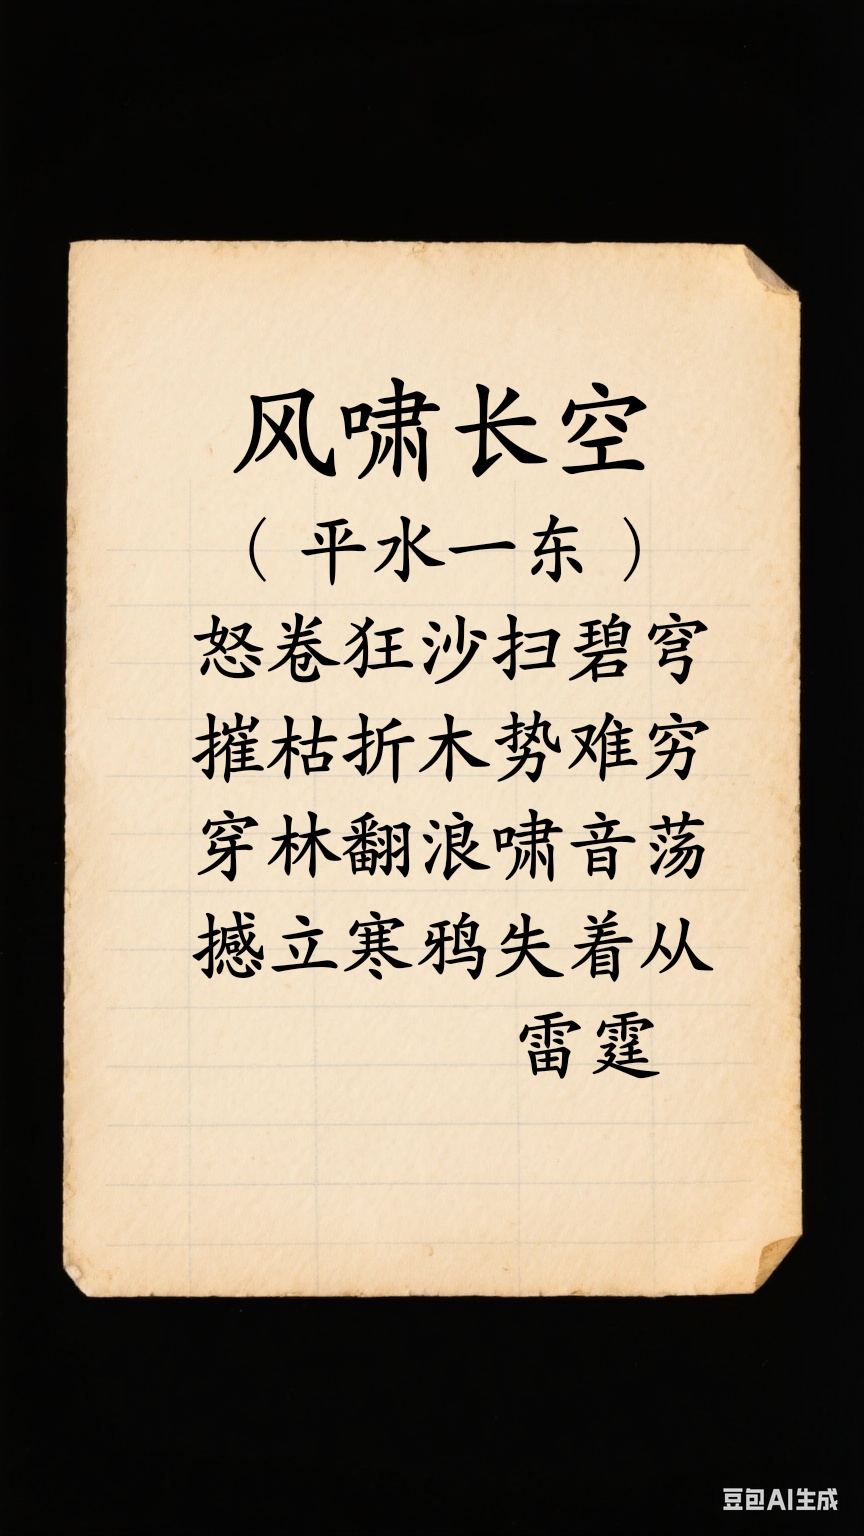 风啸长空
（平水一东）
怒卷狂沙扫碧穹
摧枯折木势难穷
穿林翻浪啸音荡
撼立寒鸦失着从
雷霆
豆包AI生成